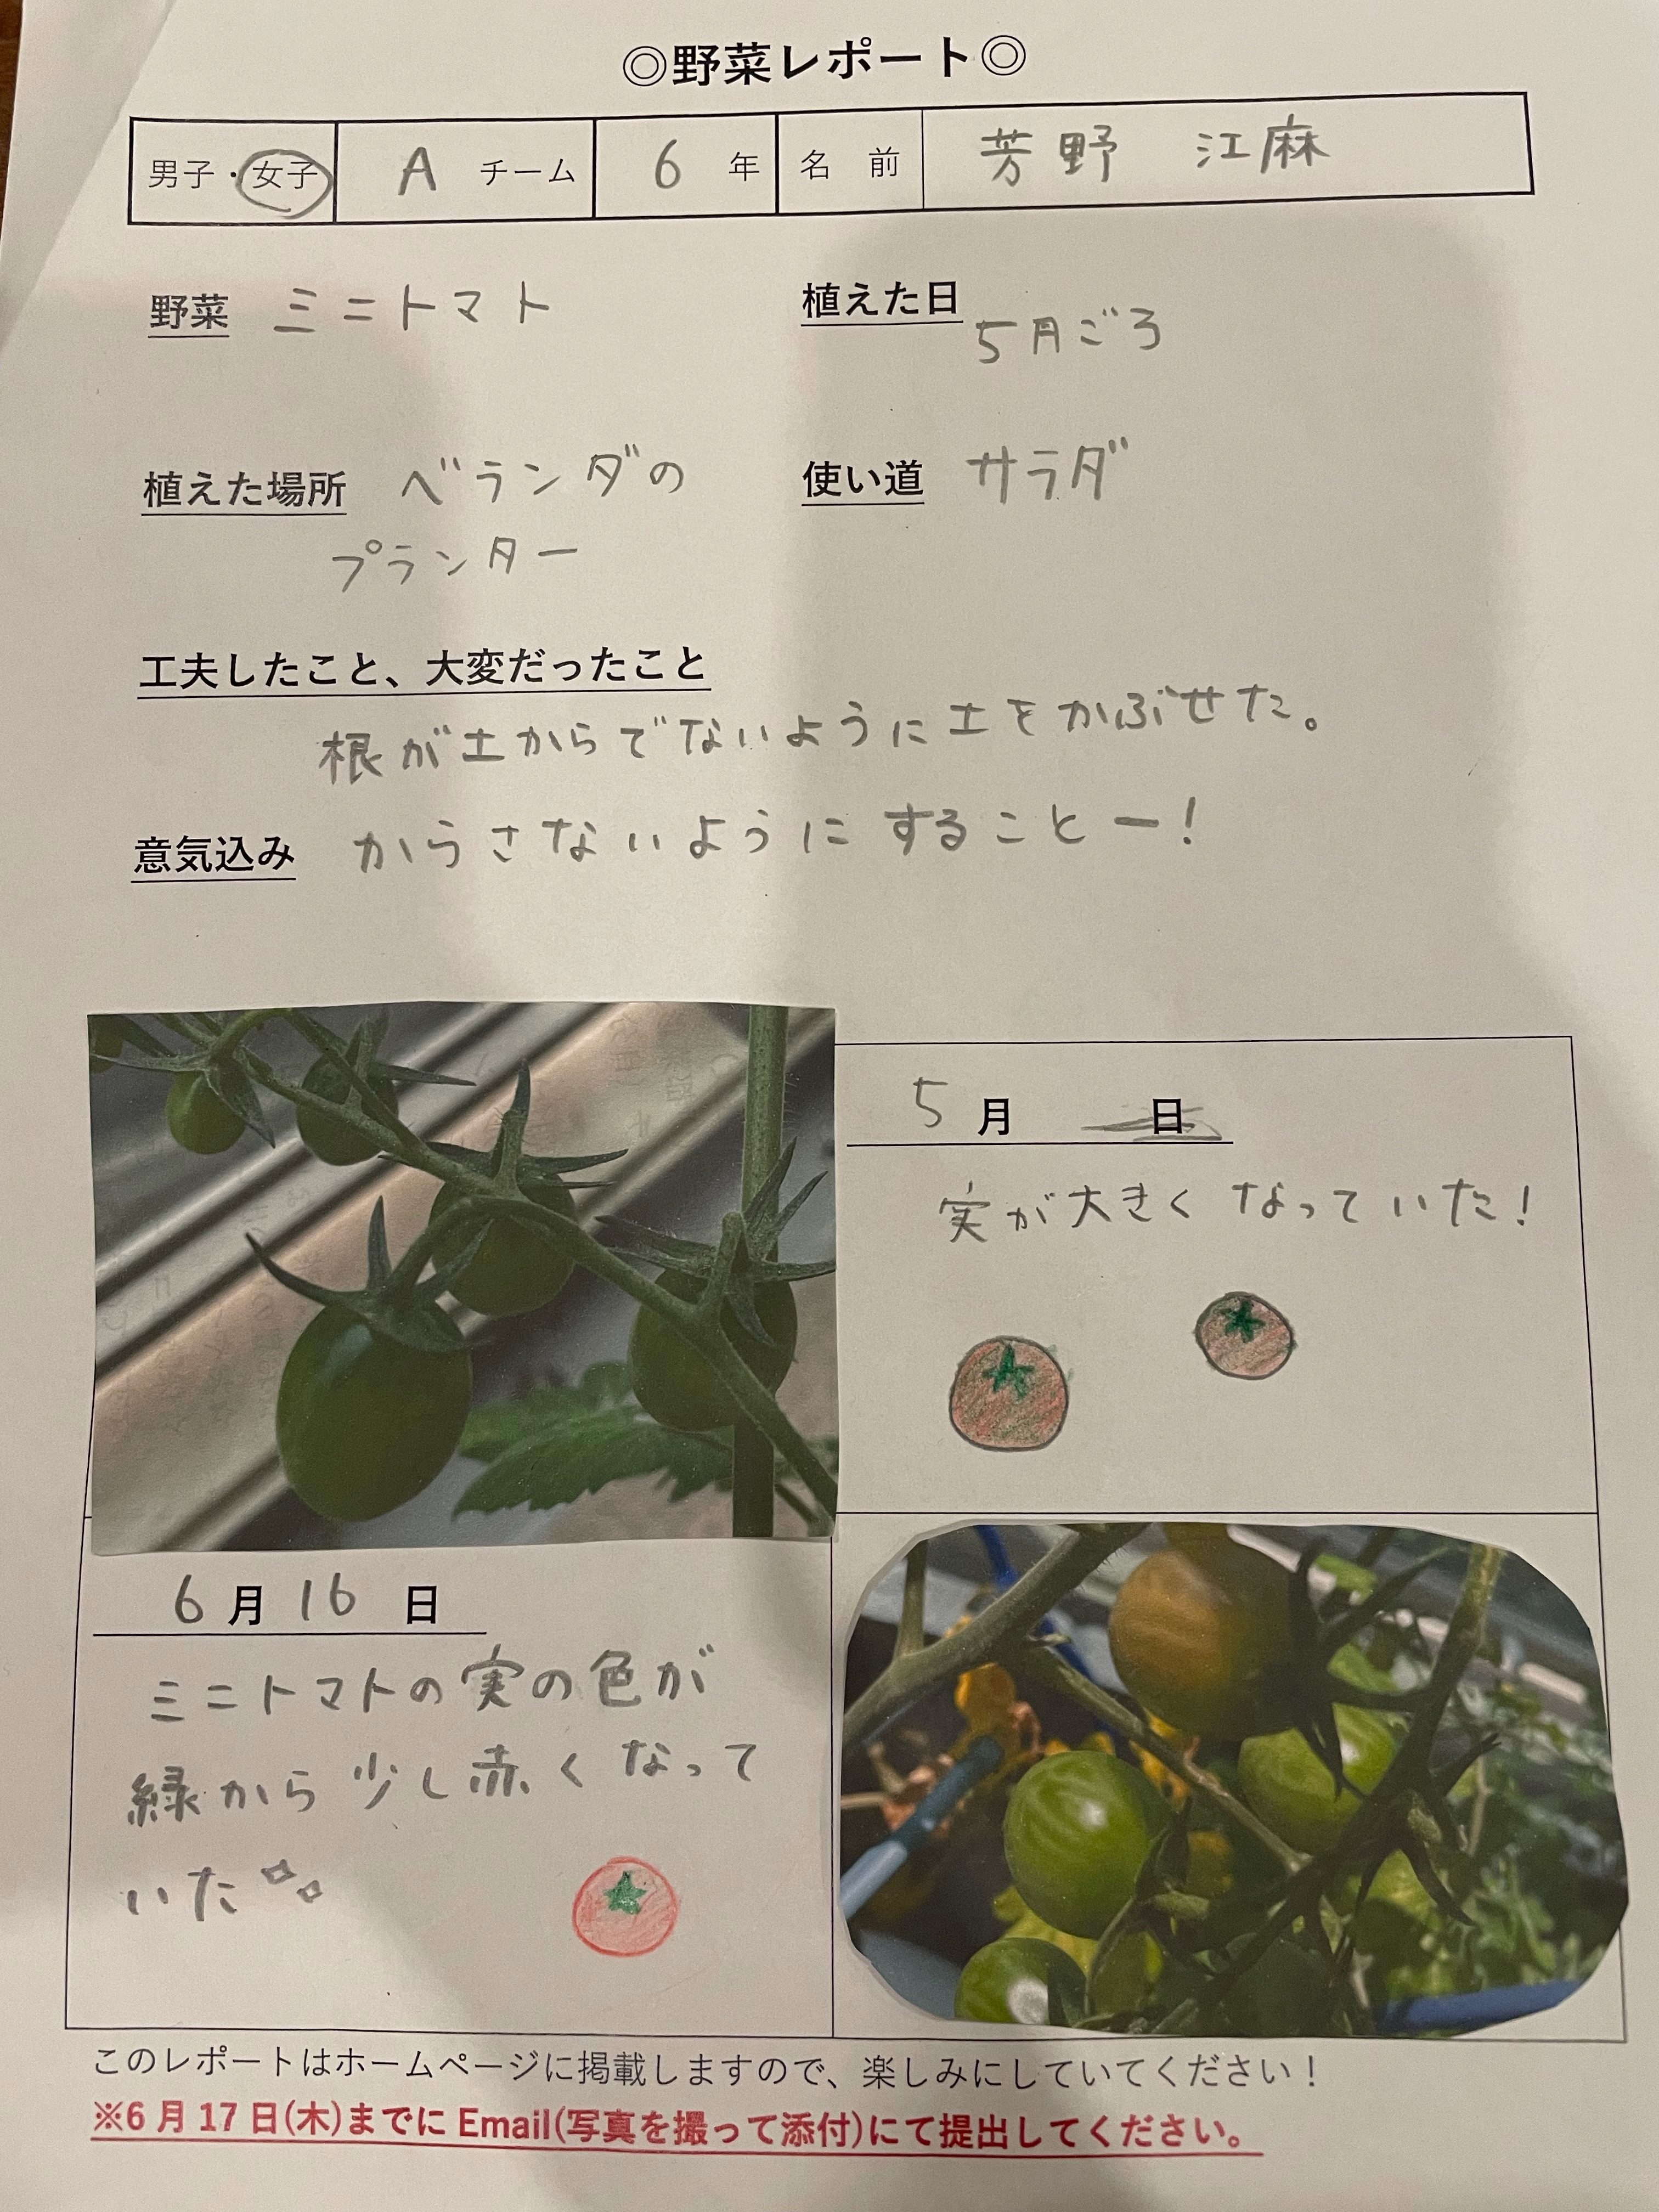 ◎野菜レポート◎
男子・女子 A チーム 6 年 名 前 芳野 江麻
野菜 ミニトマト
植えた日 5月ごろ
植えた場所 ベランダの
プランター
使い道 サラダ
工夫したこと、大変だったこと
根が土からでないように土をかぶせた。
意気込み からさないようにすることー!
5 月 日
実が大きくなっていた!
6 月 16 日
ミニトマトの実の色が
緑から少し赤くなって
いた
このレポートはホームページに掲載しますので、楽しみにしていてください!
※6 月 17 日(木)までに Email(写真を撮って添付)にて提出してください。